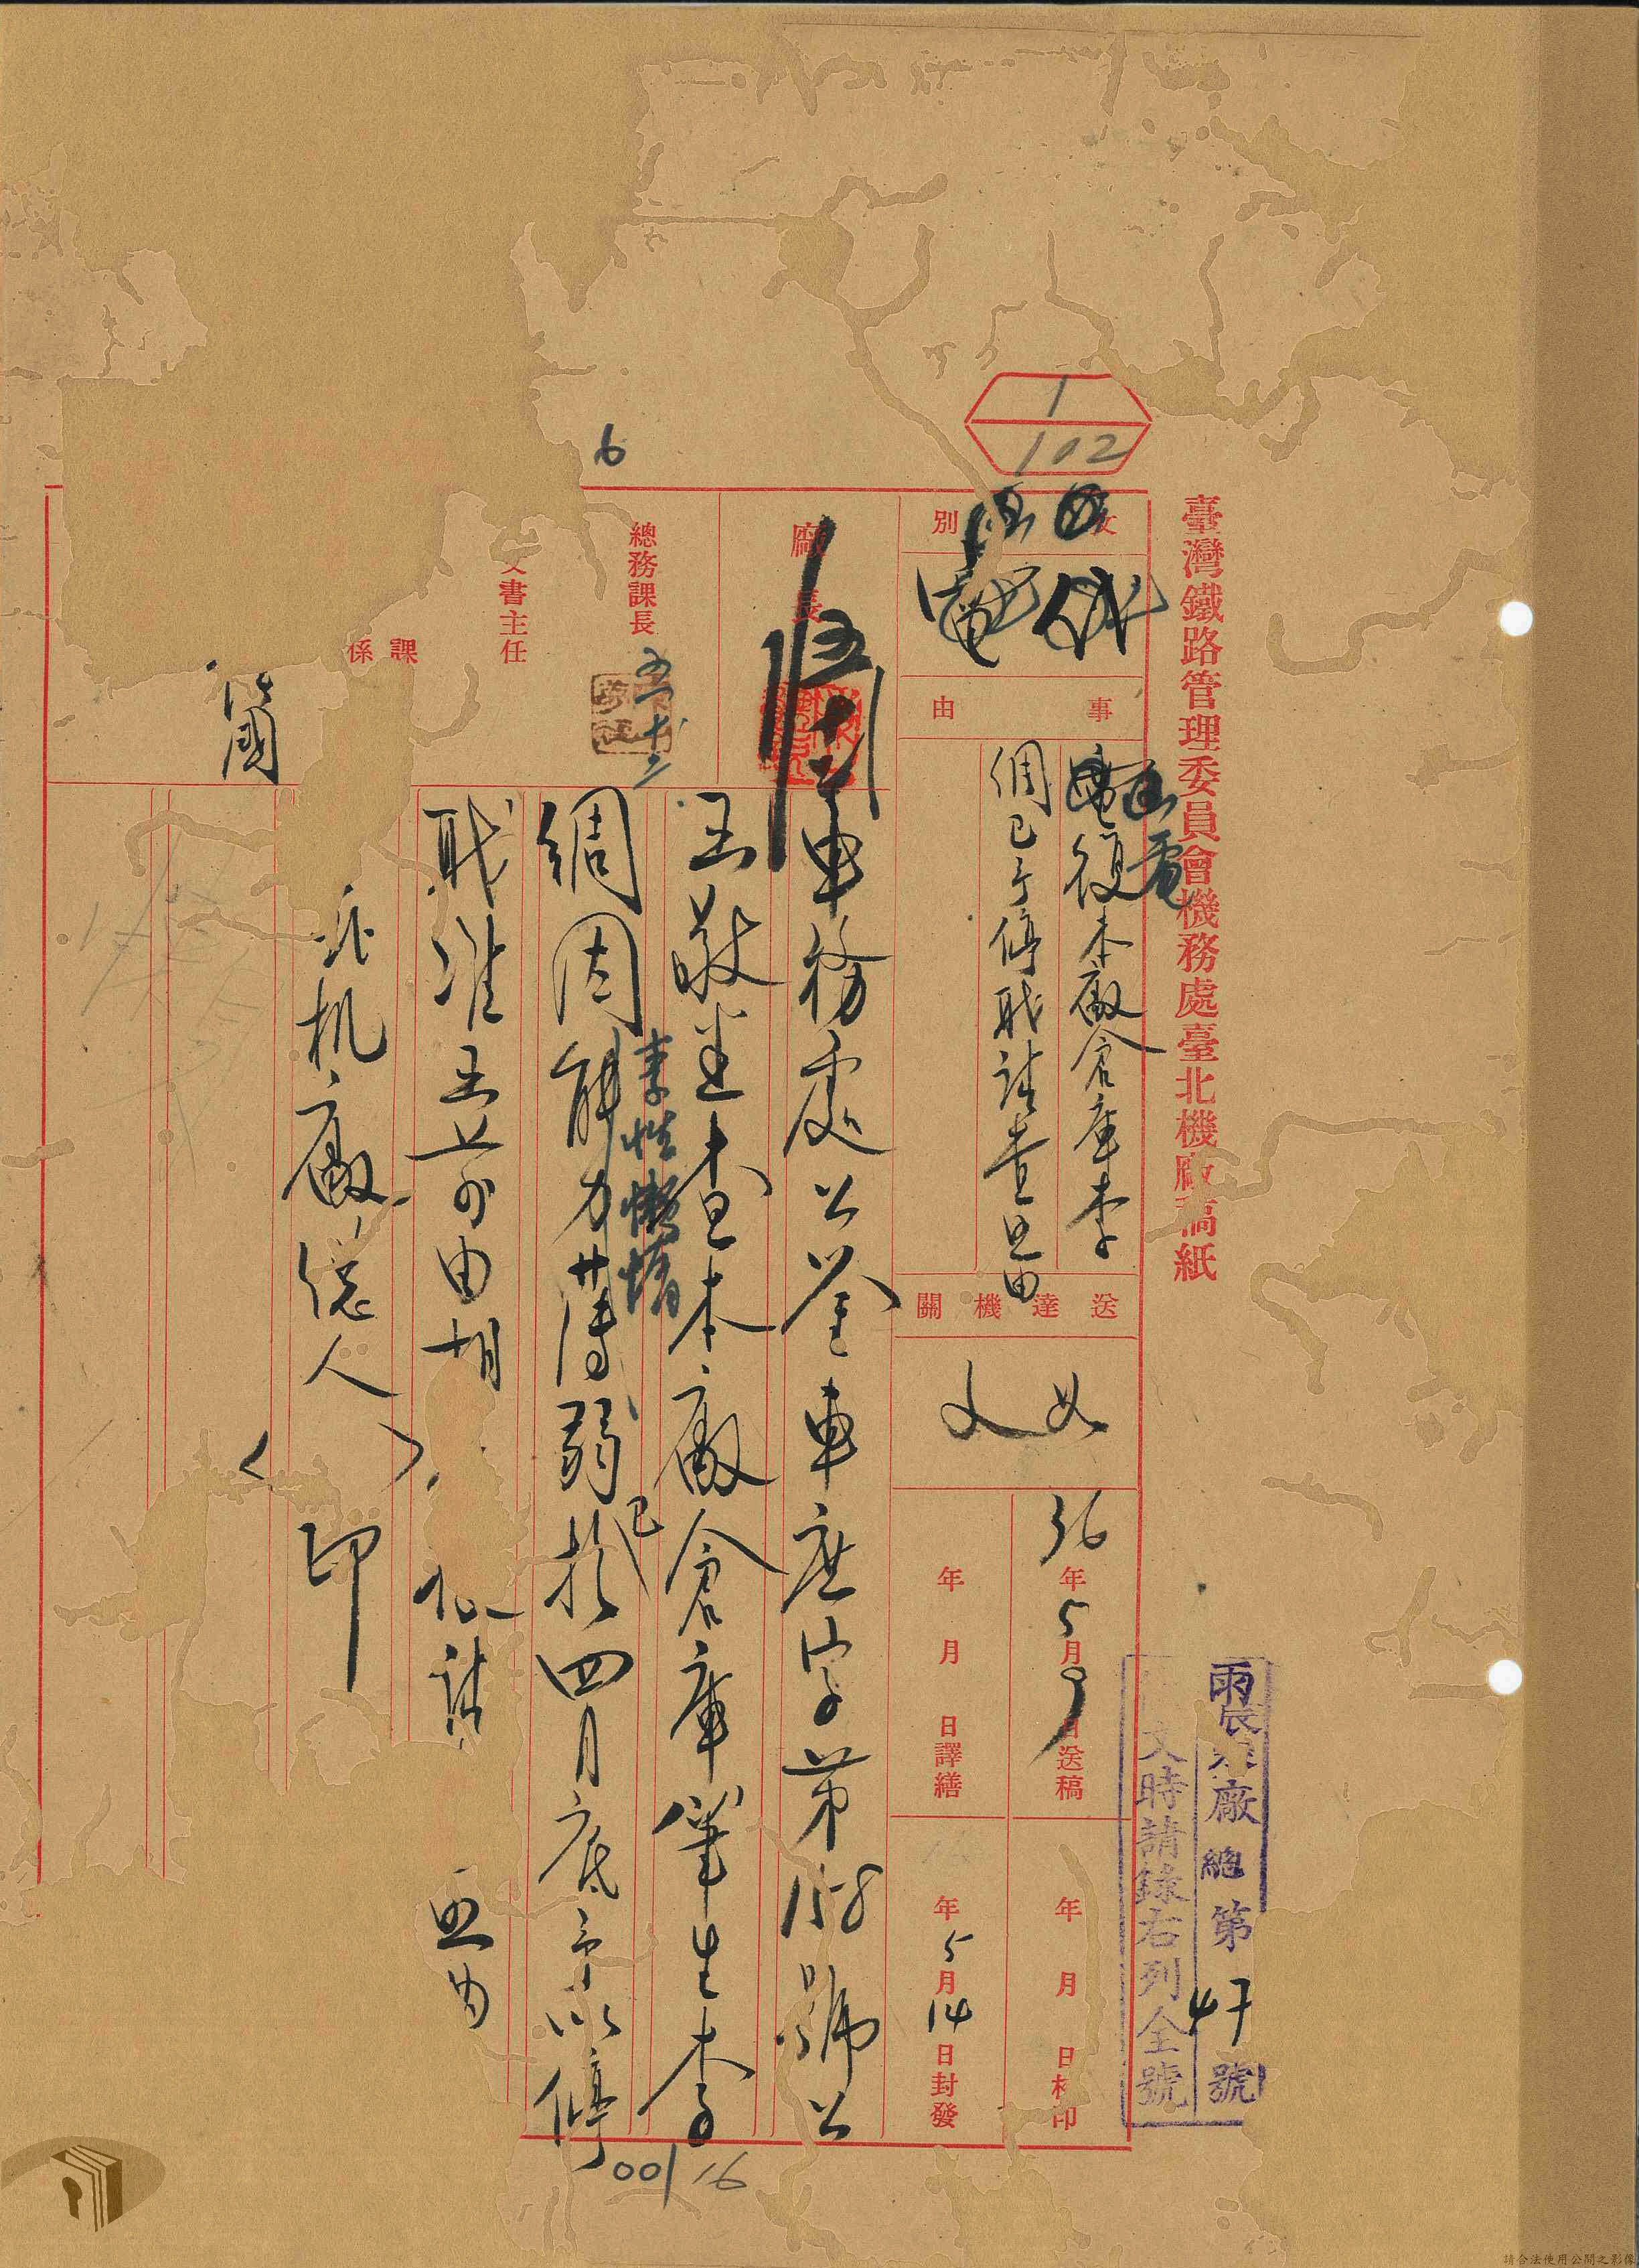 1
102
6
臺灣鐵路管理委員會機務處臺北機廠稿紙
文別
代電
事由
電復本廠倉庫李
倜已予停職請查照由
送達機關
如文
36年5月9日送稿
年月日譯繕
年月日校印
年5月14日封發
廠長
總務課長
文書主任
課
係
廠總第47號
文時請錄右列全號
車務處公鑒車庶字第158號公
函敬悉查本廠倉庫筆生李
倜因能力薄弱素性懶惰已於四月底予以停
職准函前由相
請
照為
北机廠總人
印
0016
請合法使用公開之影像